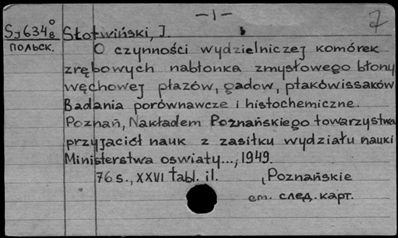 -1-
7
Sj634⁰₈ Słotwiński, J.
ПОЛЬСК.
O czynności wydzielniczej komórek
zrębowych nabłonka zmysłowego błony
węchowej płazów, gadow, ptaków i ssaków
Badania porównawcze i histochemiczne.
Poznań, Nakładem Poznańskiego towarzystwa
przyjaciół nauk z zasiłku wydziału nauki
Ministerstwa oswiaty..., 1949.
76 s., XXVI tabl. il. , Poznańskie
см. след. карт.